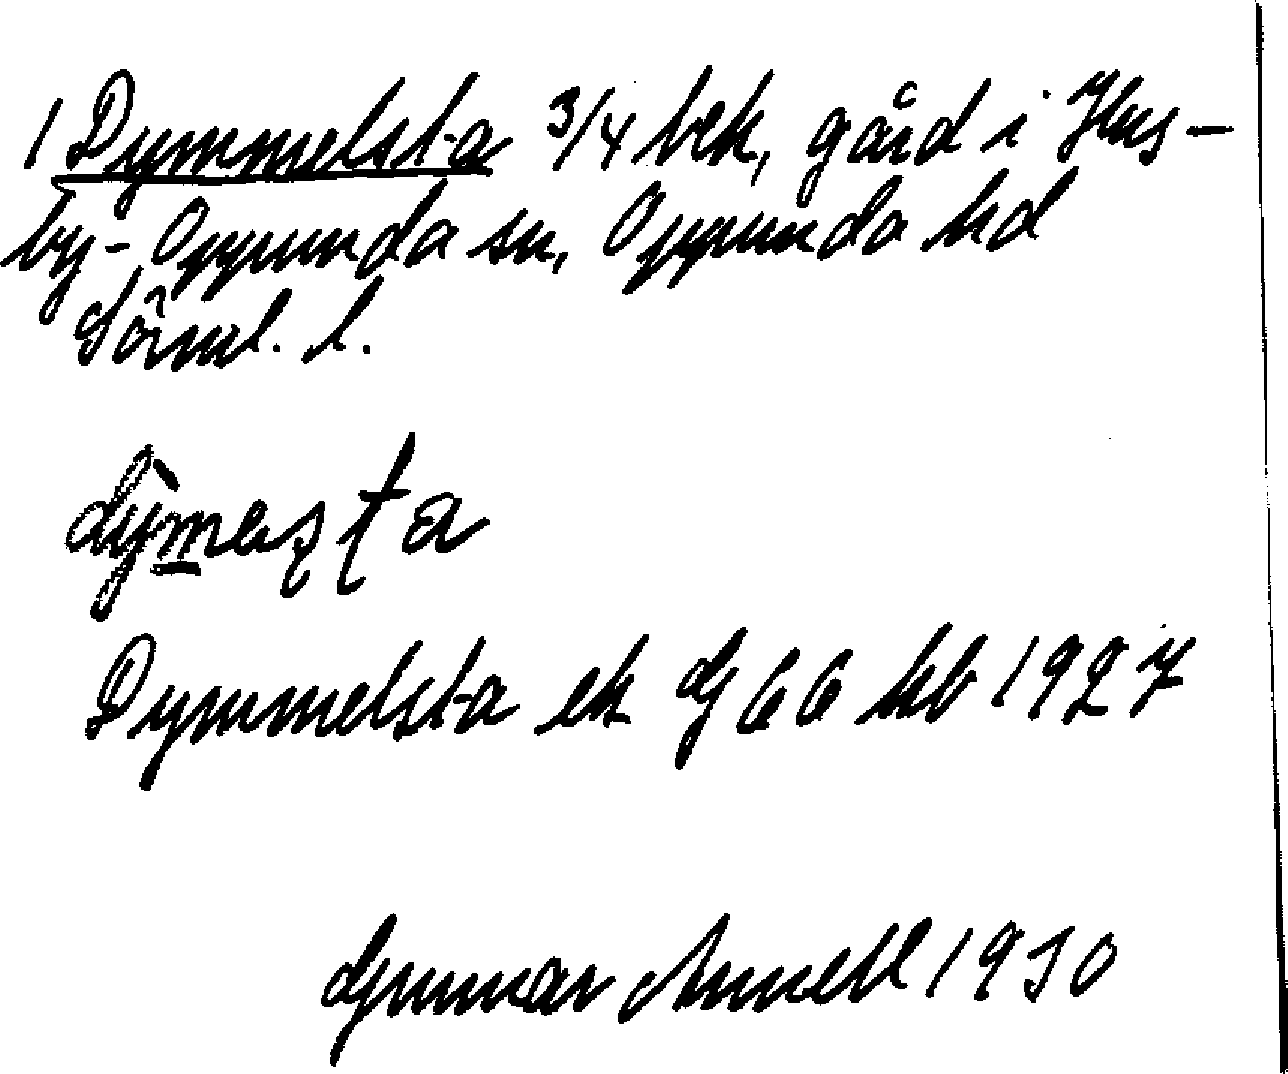 1 Dymmelsta 3/4 bek, gård i Hus-
by-Oppunda sn, Oppunda hd
Söml. l.
dỳmesta
Dymmelsta ek G 66 hb 1927
Gunnar Annell 1930